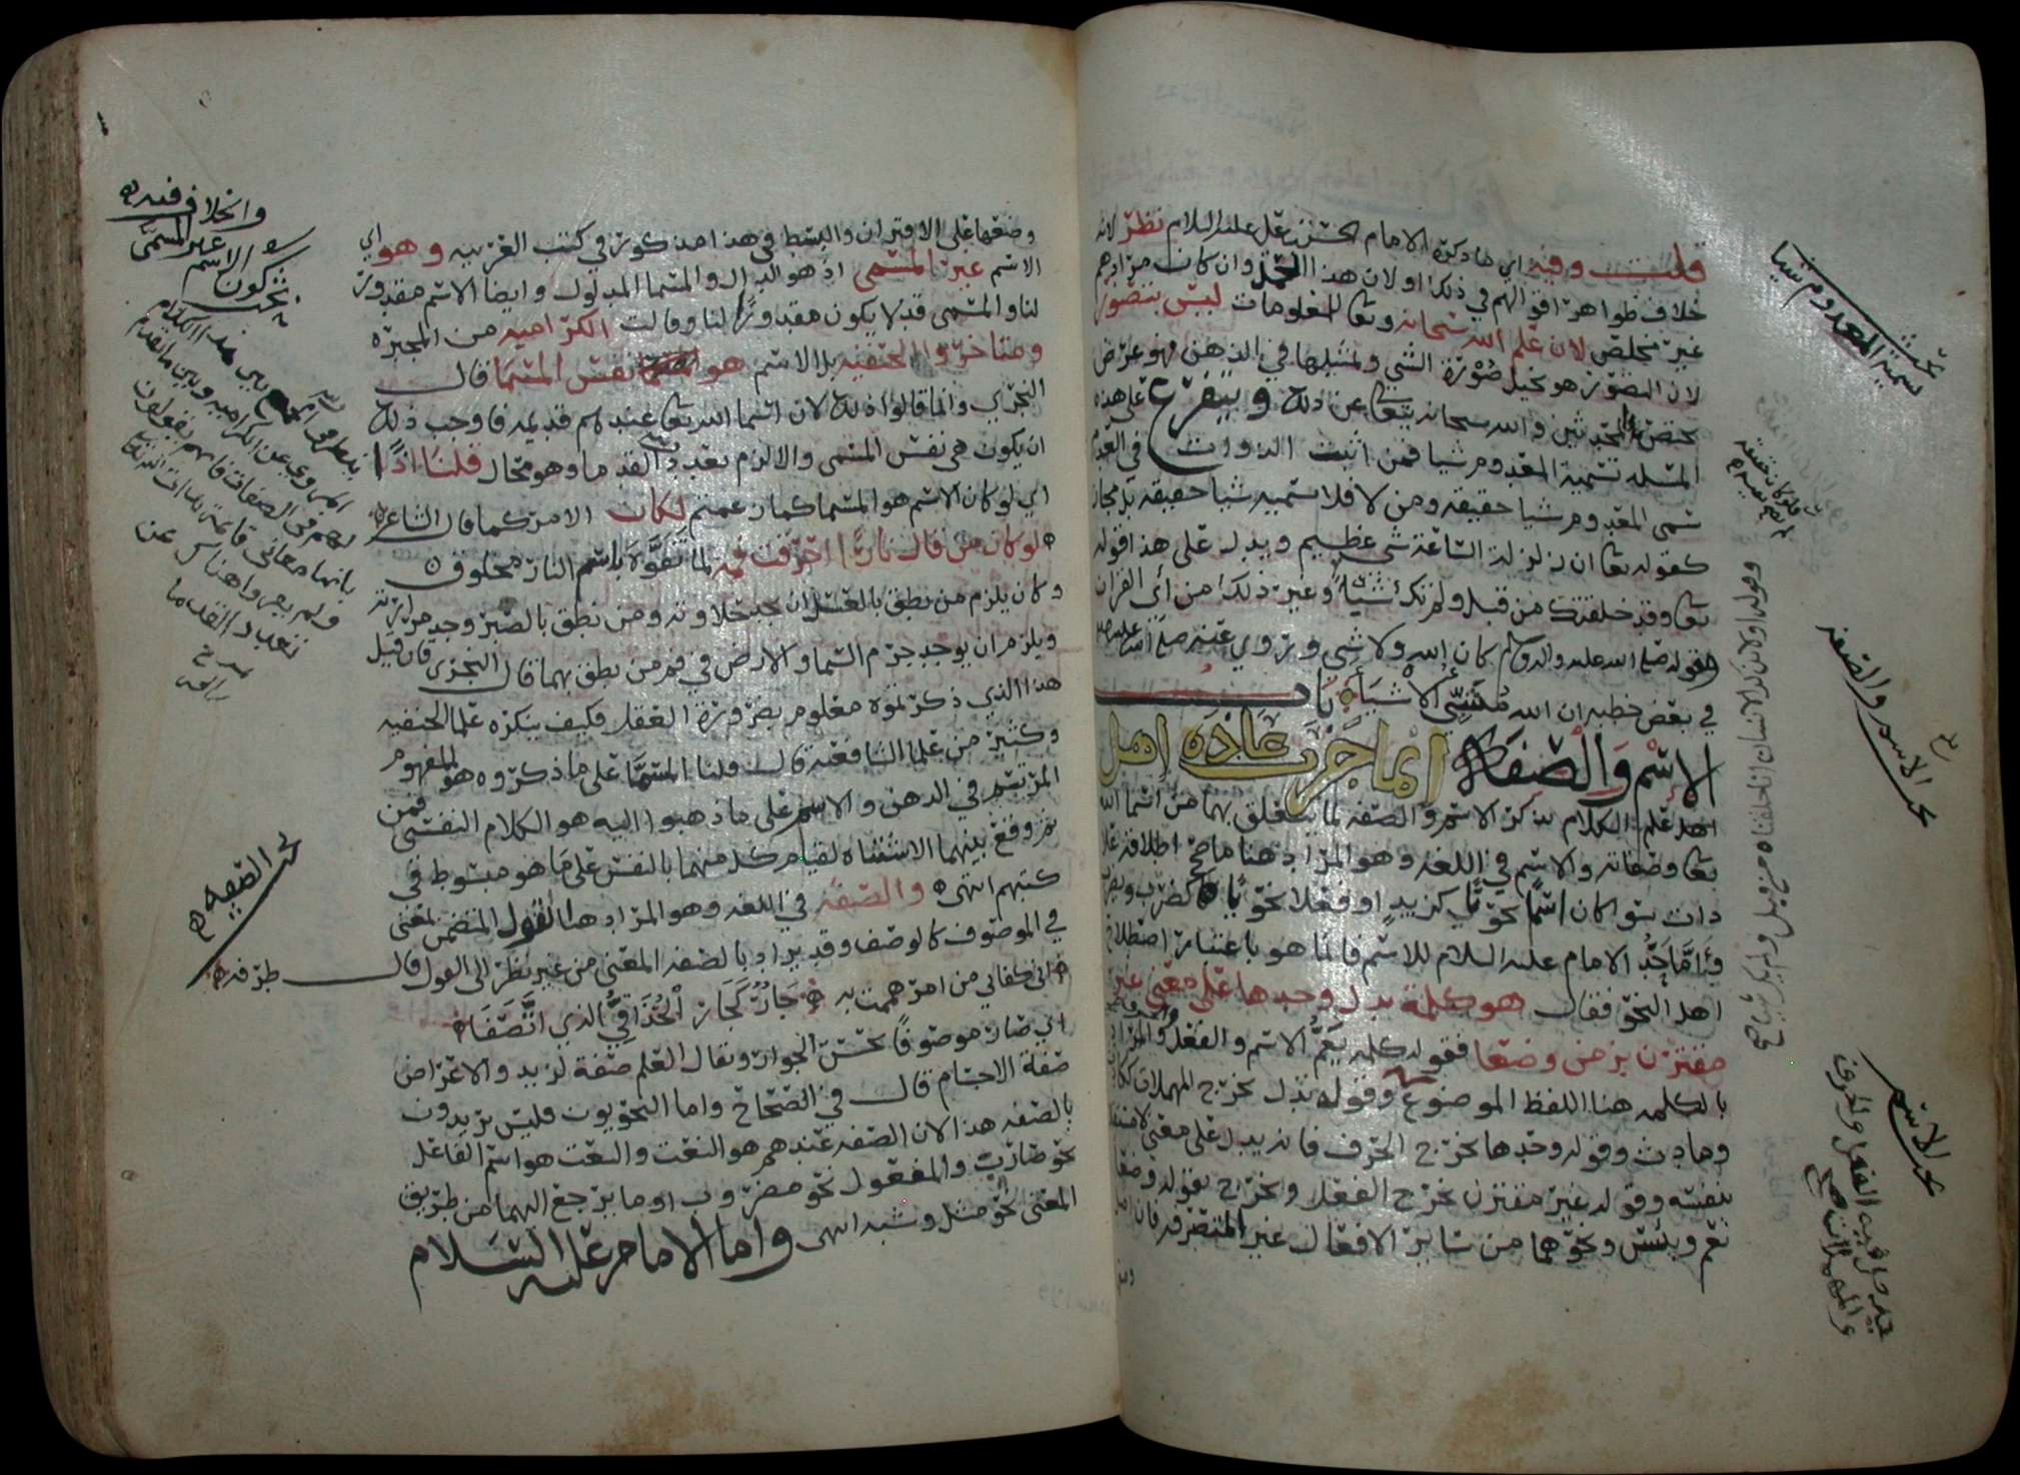 قلت وفيه اي ما ذكره الامام الحسين بن علي عليه السلام نظر لانه
خلاف ظواهر اقوالهم في ذلك اولان هذا الحمل وان كان مرادهم
غير مخلص لان علم الله سبحانه وتعالى المعلومات ليس بتصور
لان التصور هو تخيل صورة الشي وتمثيلها في الذهن فهو عرض
يختص بالمحدثين والله سبحانه يتعالى عن ذلك ويتفرع على هذه
المسئله تسمية المعدوم شيا فمن اثبت الذوات في العدم
سمى المعدوم شيا حقيقه ومن لا فلا تسميه شيا حقيقه بل مجاز
كقوله تعالى ان زلزلة الساعة شي عظيم ويدل على هذا قوله
تعالى وقد خلقتك من قبل ولم تك شيئا وغير ذلك من آي القران
وقوله صلى الله عليه واله وسلم كان الله ولا شي وروي عنه صلى الله عليه
في بعض خطبه ان الله مشيئ الاشياء باب
الاسم والصفة انما جرت عادة اهل
اهل علم الكلام بذكر الاسم والصفه لما يتعلق بهما من اسما الله
تعالى وصفاته والاسم في اللغه وهو المراد هنا ما صح اطلاقه على
ذات سوا كان اسما نحويا كزيد او فعلا نحويا كضرب ويضرب
واما حد الامام عليه السلام للاسم فانما هو باعتبار اصطلاح
اهل النحو فقال هو كلمة تدل وحدها على معنى غير
مقترن بزمن وضعا فقوله كلمه يعم الاسم والفعل والحرف والمراد
بالكلمه هنا اللفظ الموضوع وقوله تدل يخرج المهملات ككادث
ومادث وقوله وحدها يخرج الحرف فانه يدل على معنى لا
بنفسه وقوله غير مقترن يخرج الفعل ويخرج بقوله وضعا
نعم وبئس ونحوهما من سائر الافعال غير المتصرفه فان
بحث تسمية المعدوم شيا
بحث الاسم والصفه
حد الاسم
وقوله اولا يذكر الانسان انا خلقناه من قبل ولم يك شيا صح
وضعها على الاقتران والبسط في هذا مذكور في كتب العربيه وهو اي
الاسم غير المسمى اذ هو الدال والمسما المدلول وايضا الاسم مقدور
لنا والمسمى قد لا يكون مقدورا لنا وقالت الكراميه من المجبره
ومتاخروا الحنفيه بل الاسم هو نفس المسما قال
النجري وانما قالوا ذلك لان اسما الله تعالى عندهم قديمه فاوجب ذلك
ان يكون هي نفس المسمى والا لزم تعدد القدما وهو محال قلنا اذا
اي لو كان الاسم هو المسما كما زعمتم لكان الامر كما قال الشاعر
لو كان من قال نارا احرقت فمه لما تفوه باسم النار مخلوق
وكان يلزم من نطق بالعسل ان يجد حلاوته ومن نطق بالصبر وجد مرارته
ويلزم ان يوجد جرم السما والارض في فم من نطق بهما قال النجري فان قيل
هذا الذي ذكرتموه معلوم بضرورة العقل فكيف ينكره علما الحنفيه
وكثير من علما الشافعيه قال قلنا المسما على ما ذكروه هو المفهوم
المرتسم في الذهن والاسم على ما ذهبوا اليه هو الكلام النفسي فمن
ثم وقع بينهما الاشتباه لقيام كل منهما بالنفس على ما هو مبسوط في
كتبهم انتهى والصفه في اللغه وهو المراد هنا القول المتضمن لمعنى
في الموصوف كالوصف وقد يراد بالصفه المعنى من غير نظر الى القول قال طرفه
اني كفاني من امر هممت به جار كجار الحذاقي الذي اتصفا
اي صار موصوفا بحسن الجوار ويقال العلم صفة لزيد والاعراض
صفة الاجسام قال في الصحاح واما النحويون فليس يريدون
بالصفه هذا لان الصفه عندهم هو النعت والنعت هو اسم الفاعل
نحو ضارب والمفعول نحو مضروب او ما يرجع اليهما من طريق
المعنى نحو مثل وشبه انتهى واما الامام عليه السلام
والخلاف فيه
بحث كون الاسم غير المسمى
بانها معاني قائمة بذات الله تعالى
تعدد القدما
حد الصفه